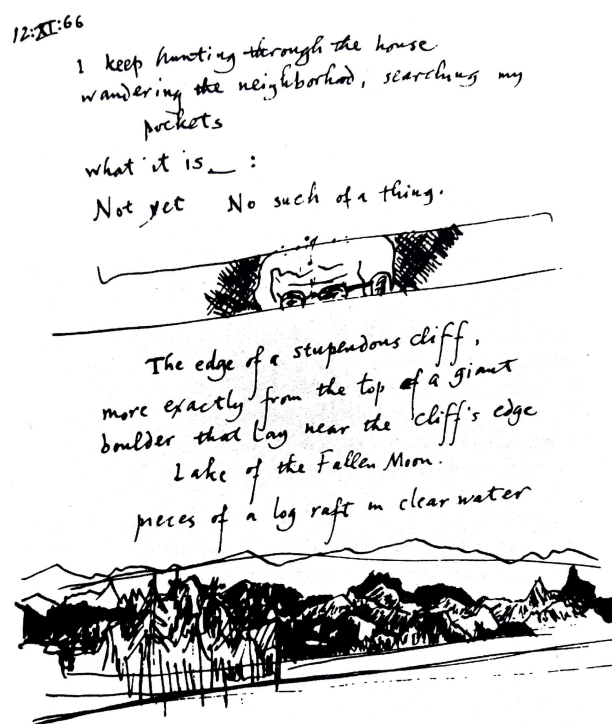 12:XI:66
I keep hunting through the house
wandering the neighborhood, searching my
pockets
what it is — :
Not yet No such of a thing.
The edge of a stupendous cliff,
more exactly from the top of a giant
boulder that lay near the cliff's edge
Lake of the Fallen Moon.
pieces of a log raft in clear water